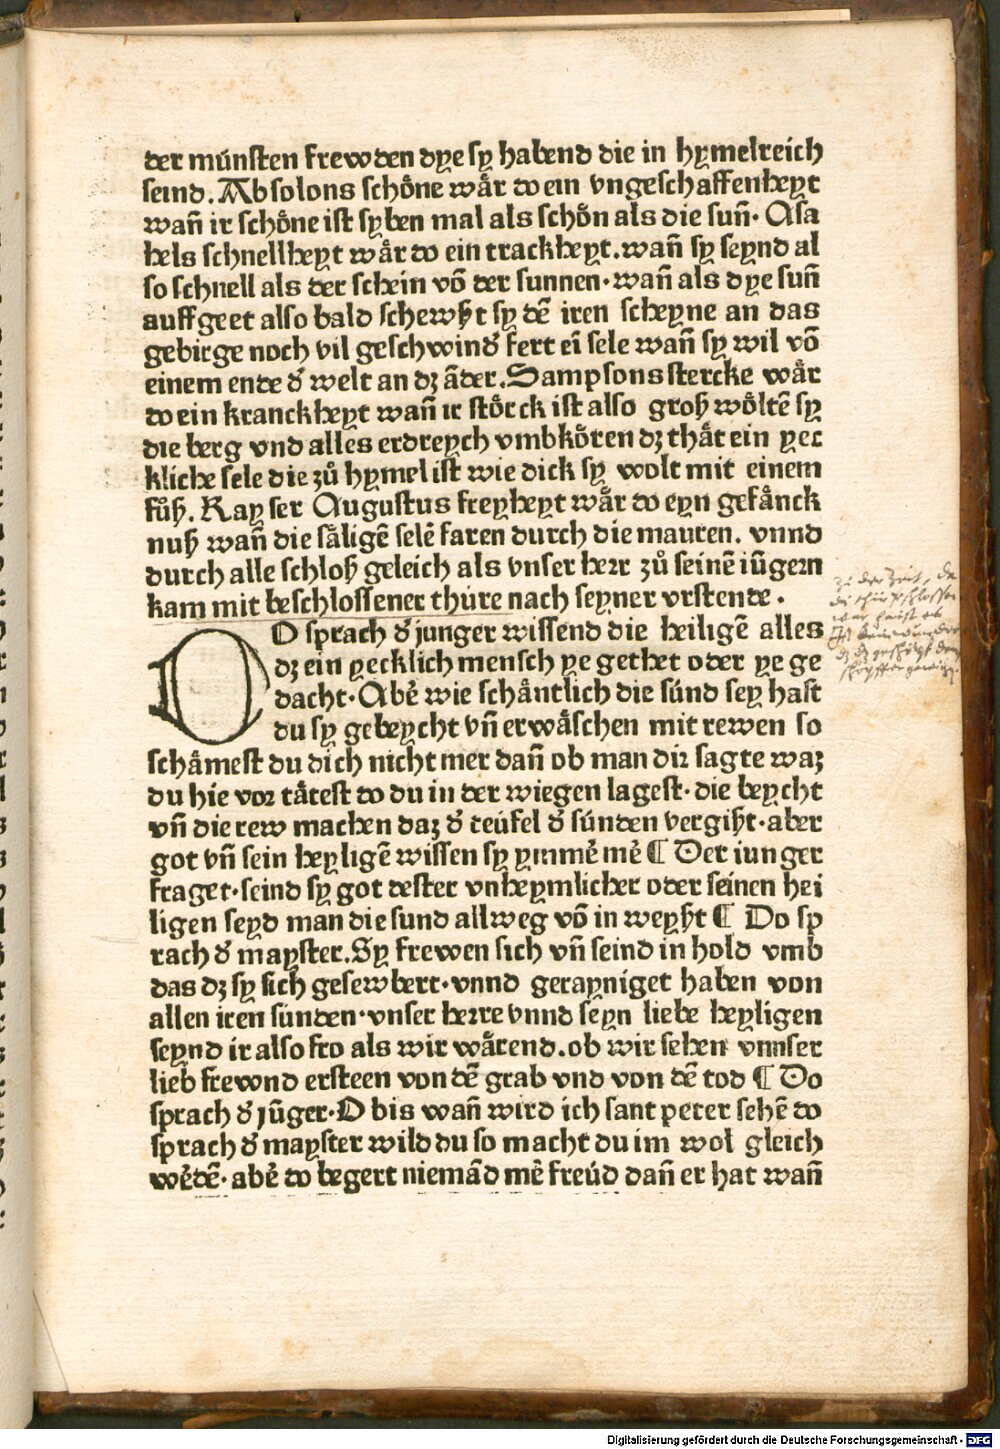 der múnsten frewden dye sy habend die in hymelreich
seind. Absolons schoͤne waͤr do ein vngeschaffenheyt
wañ ir schoͤne ist syben mal als schoͤn als die suñ. Asa
hels schnellheyt waͤr do ein trackheyt. wañ sy seynd al
so schnell als der schein võ der sunnen. wañ als dye suñ
auffgeet also bald schewßt sy dẽ iren scheyne an das
gebirge noch vil geschwind᷒ fert eĩ sele wañ sy wil võ
einem ende d᷒ welt an dz ãder. Sampsons stercke waͤr
do ein kranckheyt wañ ir stoͤrck ist also groß woͤltẽ sy
die berg vnd alles erdreych vmbkoͤren dz thaͤt ein yec
kliche sele die zuͦ hymel ist wie dick sy wolt mit einem
fuͦß. Kayser Augustus freyheyt waͤr do eyn gefaͤnck
nuß wañ die saͤligẽ selẽ faren durch die mauren. vnnd
durch alle schloß geleich als vnser herr zuͦ seinẽ iũgern
kam mit beschlossener thúre nach seyner vrstende.
DO sprach d᷒ junger wissend die heiligẽ alles
dz ein yecklich mensch ye gethet oder ye ge
dacht. Abẻ wie schaͤntlich die súnd sey hast
du sy gebeycht vñ erwaͤschen mit rewen so
schaͤmest du dich nicht mer dañ ob man dir sagte waz
du hie vor taͤtest do du in der wiegen lagest. die beycht
vñ die rew machen daz d᷒ teúfel d᷒ súnden vergißt. aber
got vñ sein heyligẽ wissen sy ymmẻ mẻ ¶ Der iunger
fraget. seind sy got dester vnheymlicher oder seinen hei
ligen seyd man die sund allweg võ in weyßt ¶ Do sp
rach d᷒ mayster. Sy frewen sich vñ seind in hold vmb
das dz sy sich gesewbert. vnnd gerayniget haben von
allen iren súnden. vnser herre vnnd seyn liebe heyligen
seynd ir also fro als wir waͤrend. ob wir sehen vnnser
lieb frewnd ersteen von dẽ grab vnd von dẽ tod ¶ Do
sprach d᷒ jũger. O bis wañ wird ich sant peter sehẽ do
sprach d᷒ mayster wild du so macht du im wol gleich
wẻdẽ. abẻ do begert niemãd mẻ freúd dañ er hat wañ
zu der Zeit, da
Digitalisierung gefördert durch die Deutsche Forschungsgemeinschaft - DFG